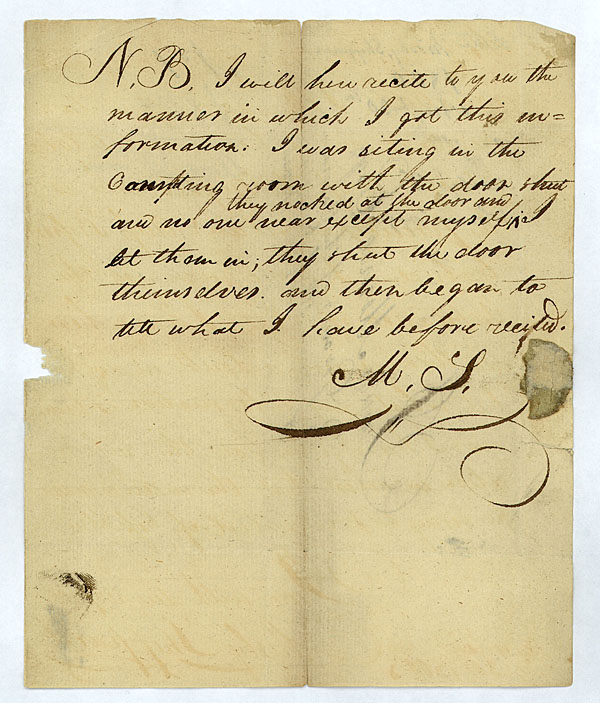 N.B. I will here recite to you the
manner in which I got this in=
formation: I was siting in the
Compting room with the door shut
they nocked at the door and
and no one near except myself, ^ I
let them in; they shut the door
themselves. and then began to
tell what I have before recited.
M. S.